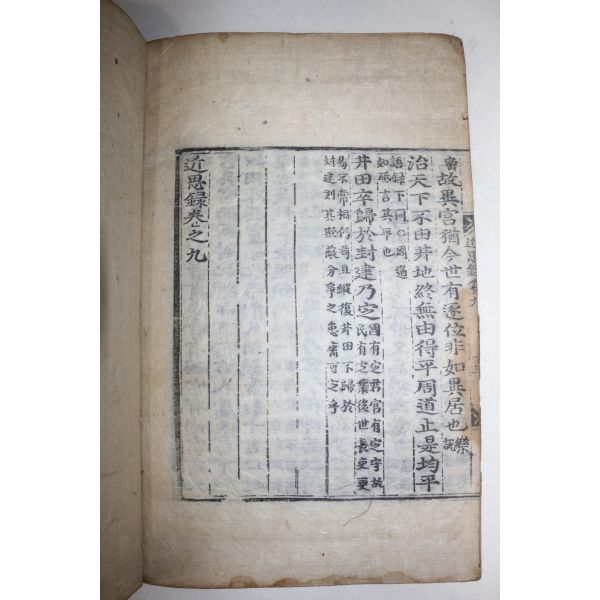 當故異宮猶今世有逐位非如異居也樂說
治天下不由井地終無由得平周道止是均平
語錄下同○周道
如砥言其平也
井田卒歸於封建乃定國有定君官有定守故
民有定業後世長吏更
易不常相仍苟且縱復井田不歸於
封建則其欺蔽分爭之患庸可定乎
近思錄卷之九
近思錄卷九